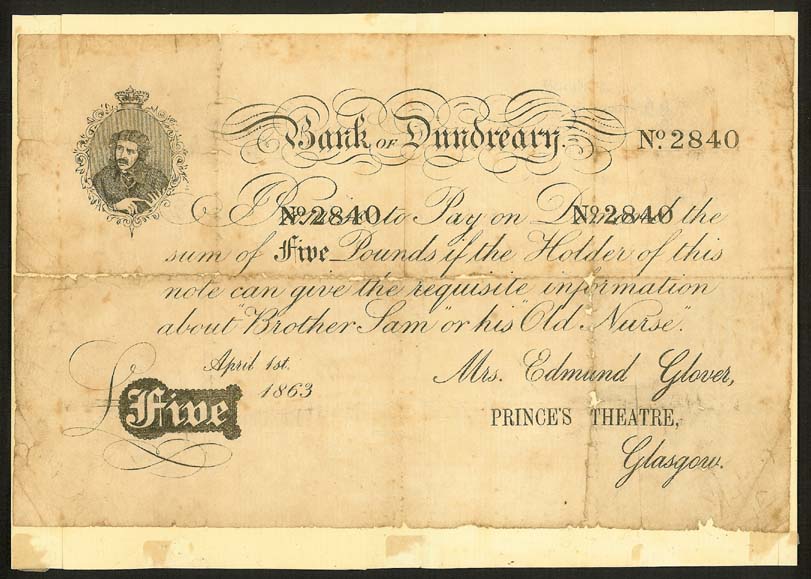 Bank of Dundreary.
No. 2840
I Promise to Pay on Demand the
No. 2840 No. 2840
sum of Five Pounds if the Holder of this
note can give the requisite information
about "Brother Sam" or his "Old Nurse".
April 1st. 1863
£ Five
Mrs. Edmund Glover,
PRINCE'S THEATRE,
Glasgow.